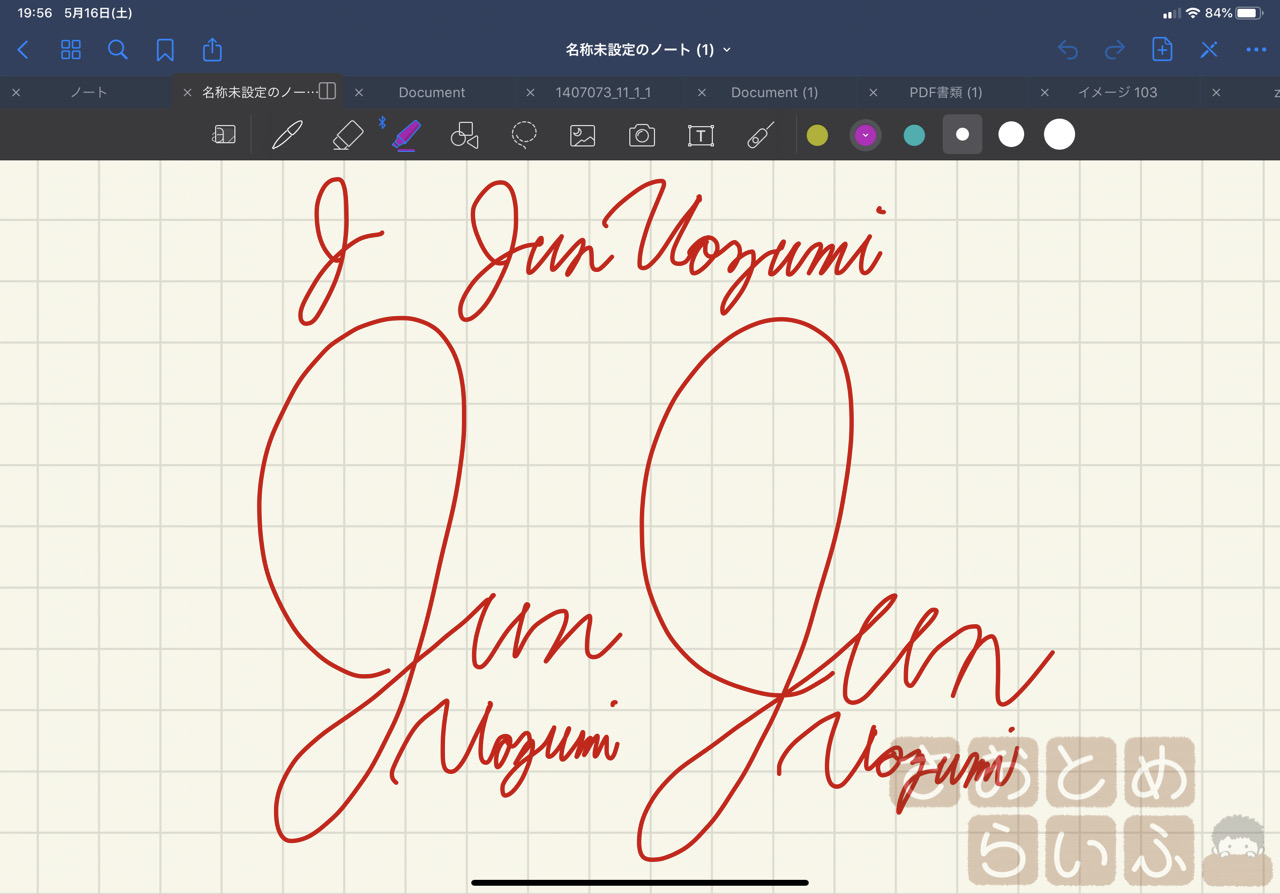 19:56 5月16日(土) 84%
名称未設定のノート (1)
ノート 名称未設定のノー… Document 1407073_11_1_1 Document (1) PDF書類 (1) イメージ 103 z
T
J Jun Uozumi
Jun Jun
Uozumi Uozumi
さおとめ
らいふ